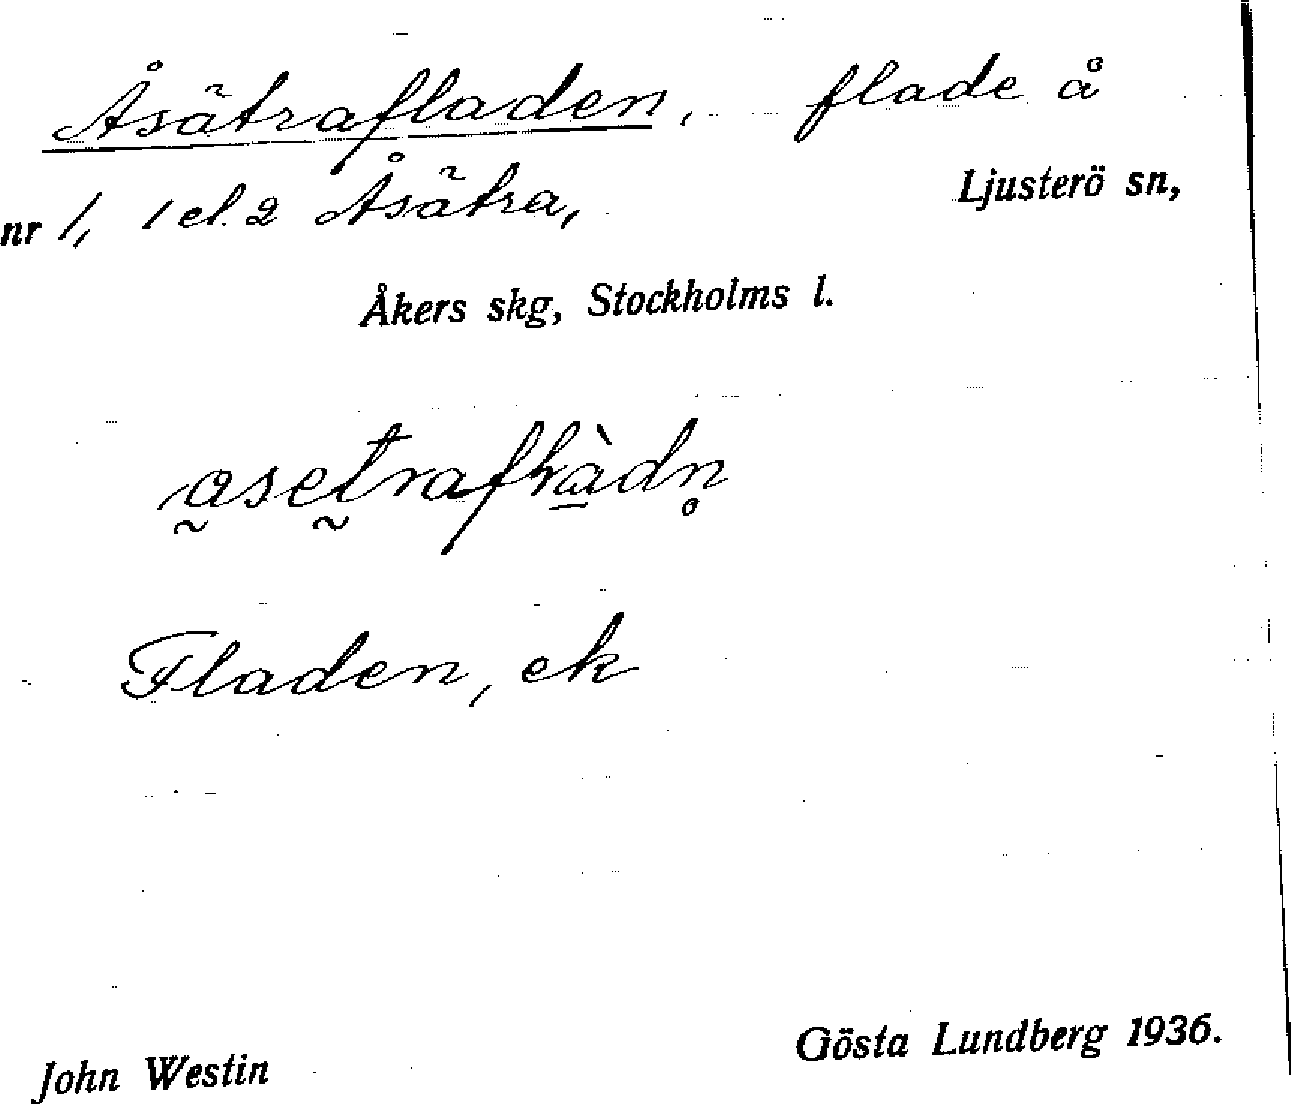 Åsätrafladen, flade å
nr 1, 1 el. 2 Åsätra, Ljusterö sn,
Åkers skg, Stockholms l.
Fladen, ek
John Westin Gösta Lundberg 1936.